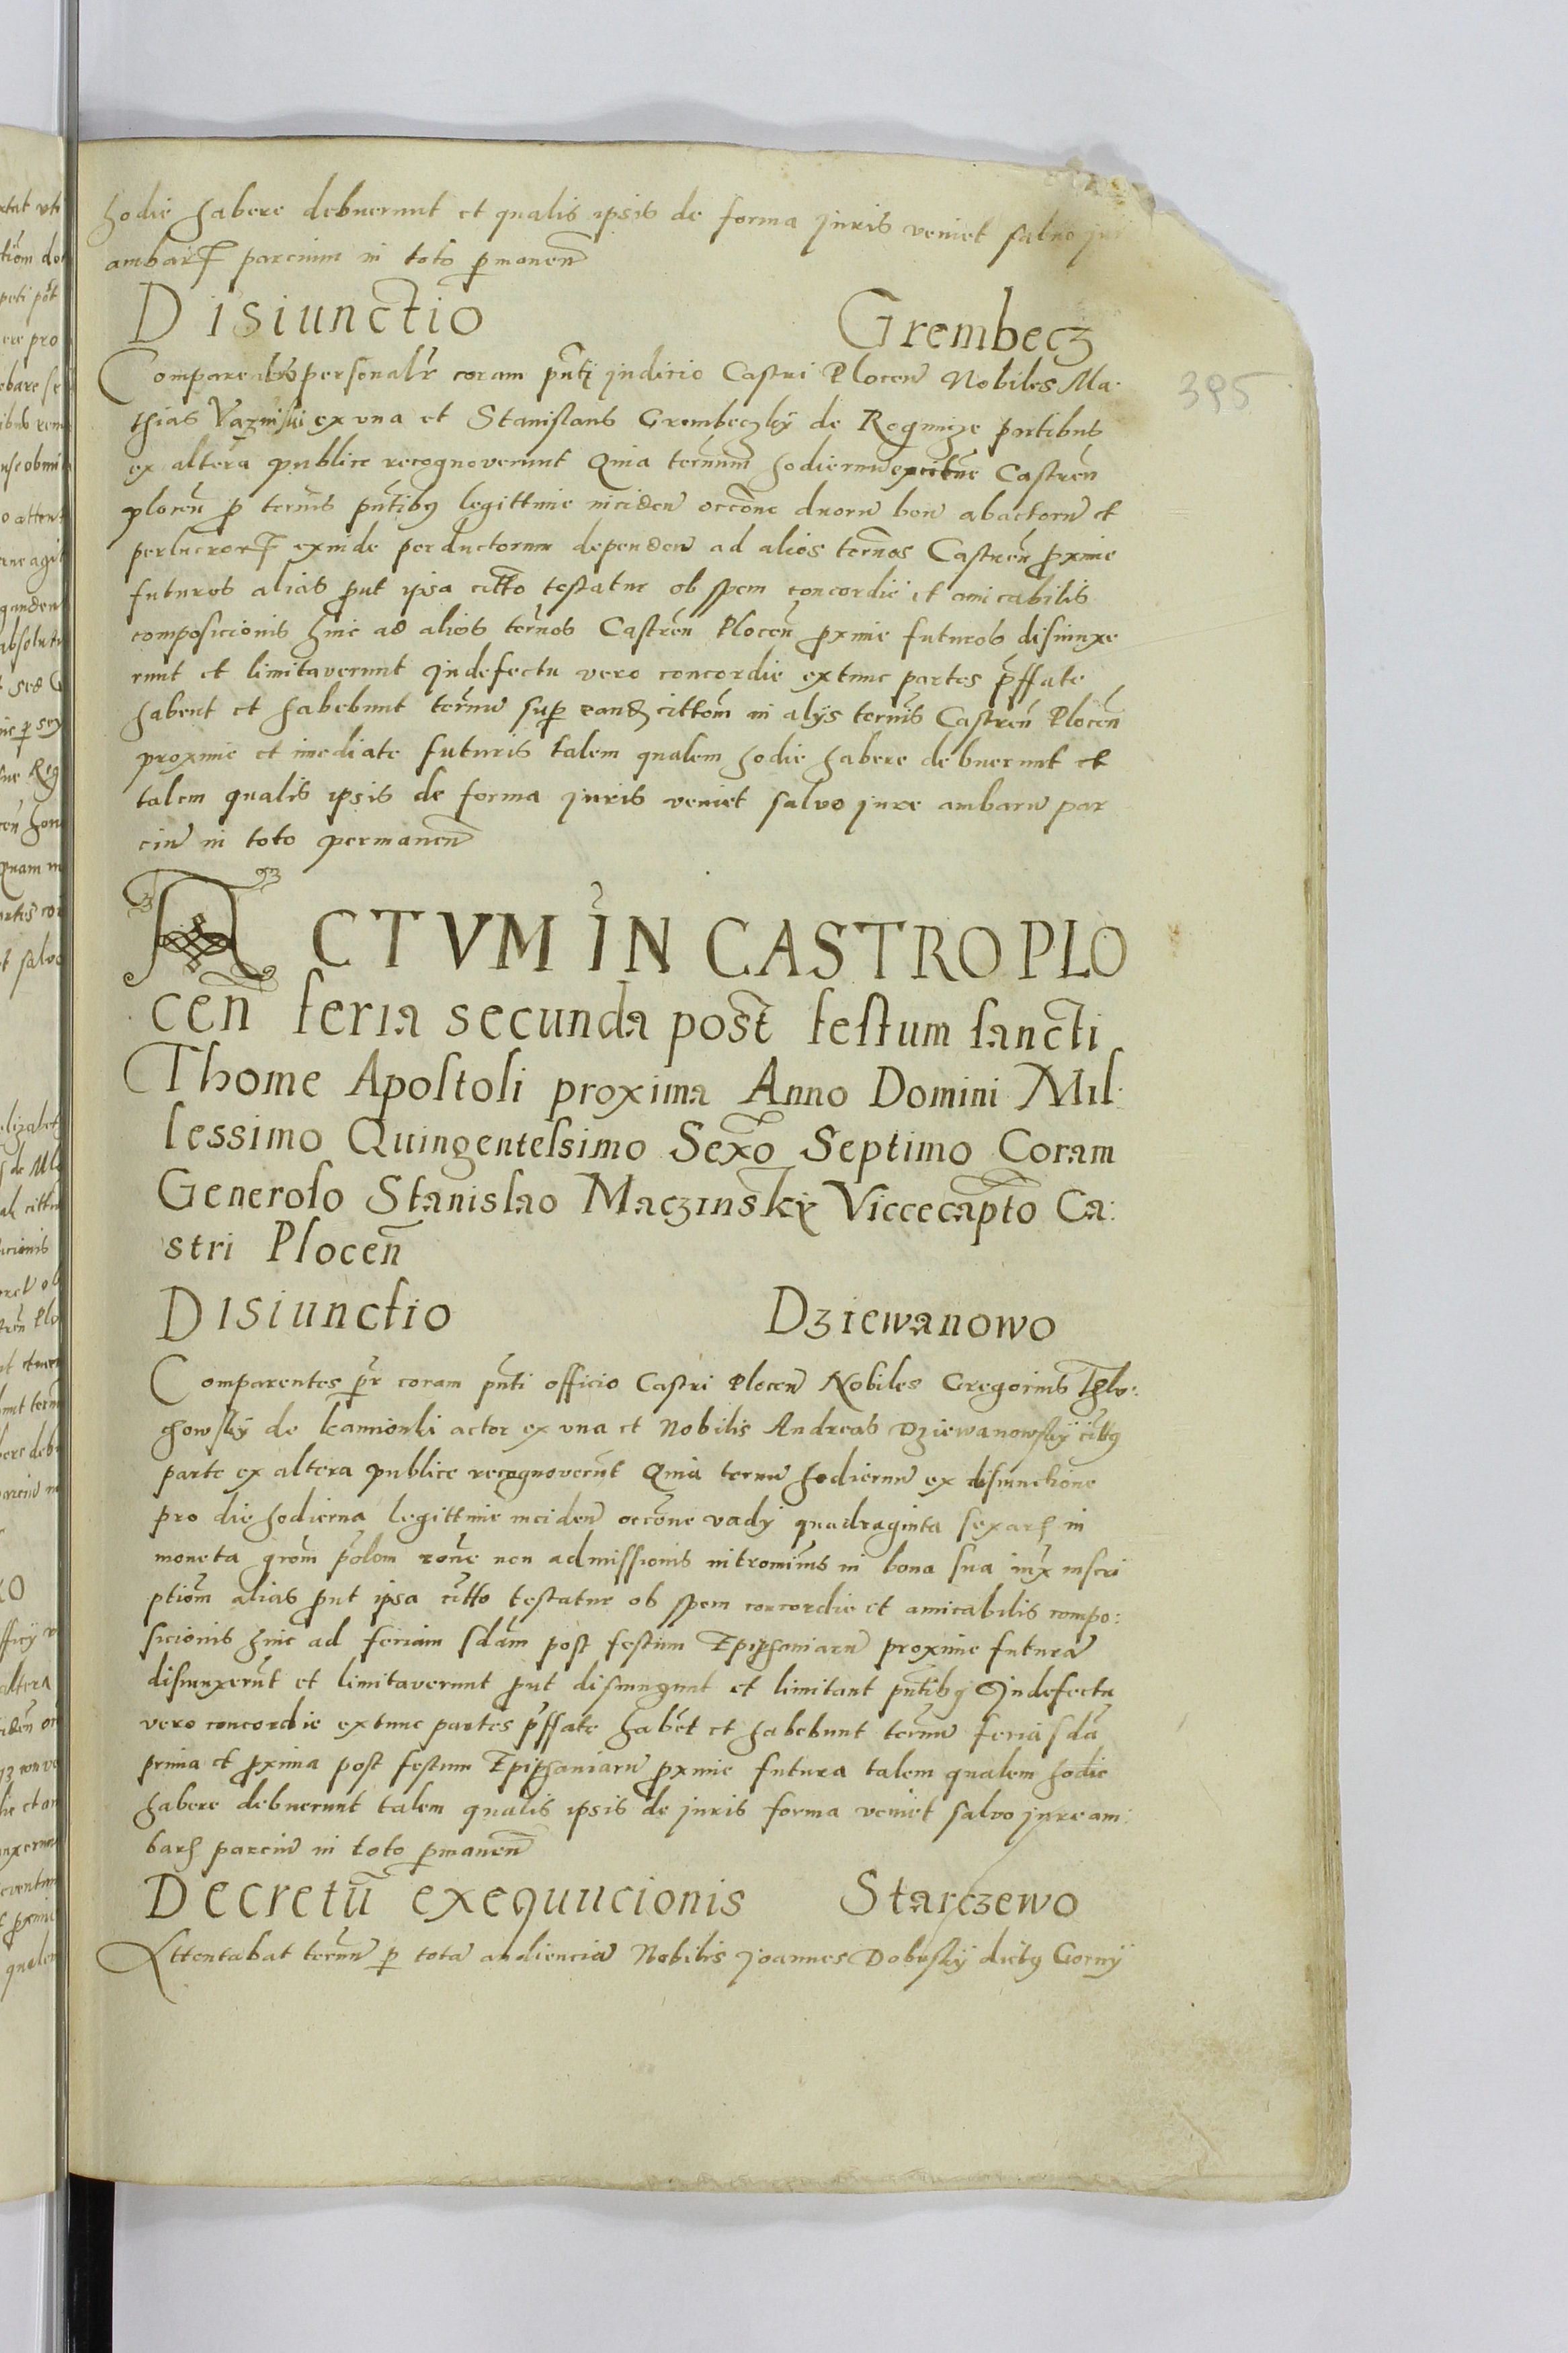 hodie habere debuerunt et qualis ipsis de forma juris veniet salvo
ambarꝝ parcium in toto ꝑmaneñ
Disiunctio Grembecz
Comparentes personalr̃ coram pñti judicio Castri Ploceñ Nobiles Ma:
thias et Stanislaus Grembeczky de Rogmicze partibus
ex altera publice recognoverunt Quia terminum hodiernũ Castreñ
ploceñ ꝑ termĩs pñtibꝫ legittime incideñ occõne duorũ boũ abactorũ et
exinde perductorum dependeñ ad alios termĩos Castreñ ꝓxime
futuros alias ꝓut ipsa citt̃o testatur ob spem concordie et amicabilis
composicionis hinc ad alios termĩos Castreñ Ploceñ ꝓxime futuros disiunxe
runt et limitaverunt Indefectu vero concordie extunc partes p̃ffate
habent et habebunt termĩũ suꝑ eandꝫ cittõm in alijs termĩs Castreñ Ploceñ
proxime et imediate futuris talem qualem hodie habere debuerunt et
talem qualis ipsis de forma juris veniet salvo jure ambarũ par
ciũ in toto permaneñ
ACTVM IN CASTRO PLO
ceñ feria secunda post festum sancti
Thome Apostoli proxima Anno Domini Mil:
lessimo Quingentessimo Sexo Septimo Coram
Generoso Stanislao Maczinsky Viccecapto Ca:
stri Ploceñ
Disiunctio Dziewanowo
Comparentes ꝑr̃ coram pñti officio Castri Ploceñ Nobiles Gregorius
howsky de kamionki actor ex una et Nobilis Andreas Dziewanowsky citt̃ꝫ
parte ex altera publice recognoverũt Quia termĩũ hodiernũ ex disiunctione
pro die hodierna legittime incideñ occõne vadij quadraginta sexarꝝ in
moneta grõm p̃olom rõne non admissionis intromiss̃ in bona sua inscri
ptiõm alias ꝓut ipsa citt̃o testatur ob spem concordie et amicabilis compo:
sicionis hinc ad feriam sdam post festum Epiphaniarũ proxime futurã
disiunxerũt et limitaverunt ꝓut disiungunt et limitant pñtibꝫ Indefectu
vero concordie extunc partes p̃ffate habẽt et habebunt termĩũ feria sdã
prima et ꝓxima post festum Epiphaniarũ ꝓxime futura talem qualem hodie
habere debuerunt talem qualis ipsis de juris forma veniet salvo jure am:
barꝝ parciũ in toto ꝑmaneñ
Decretũ exequucionis Starczewo
Attentabat termĩũ ꝑ totã audienciã Nobilis Joannes Dobrsky dictꝫ Gorny
395